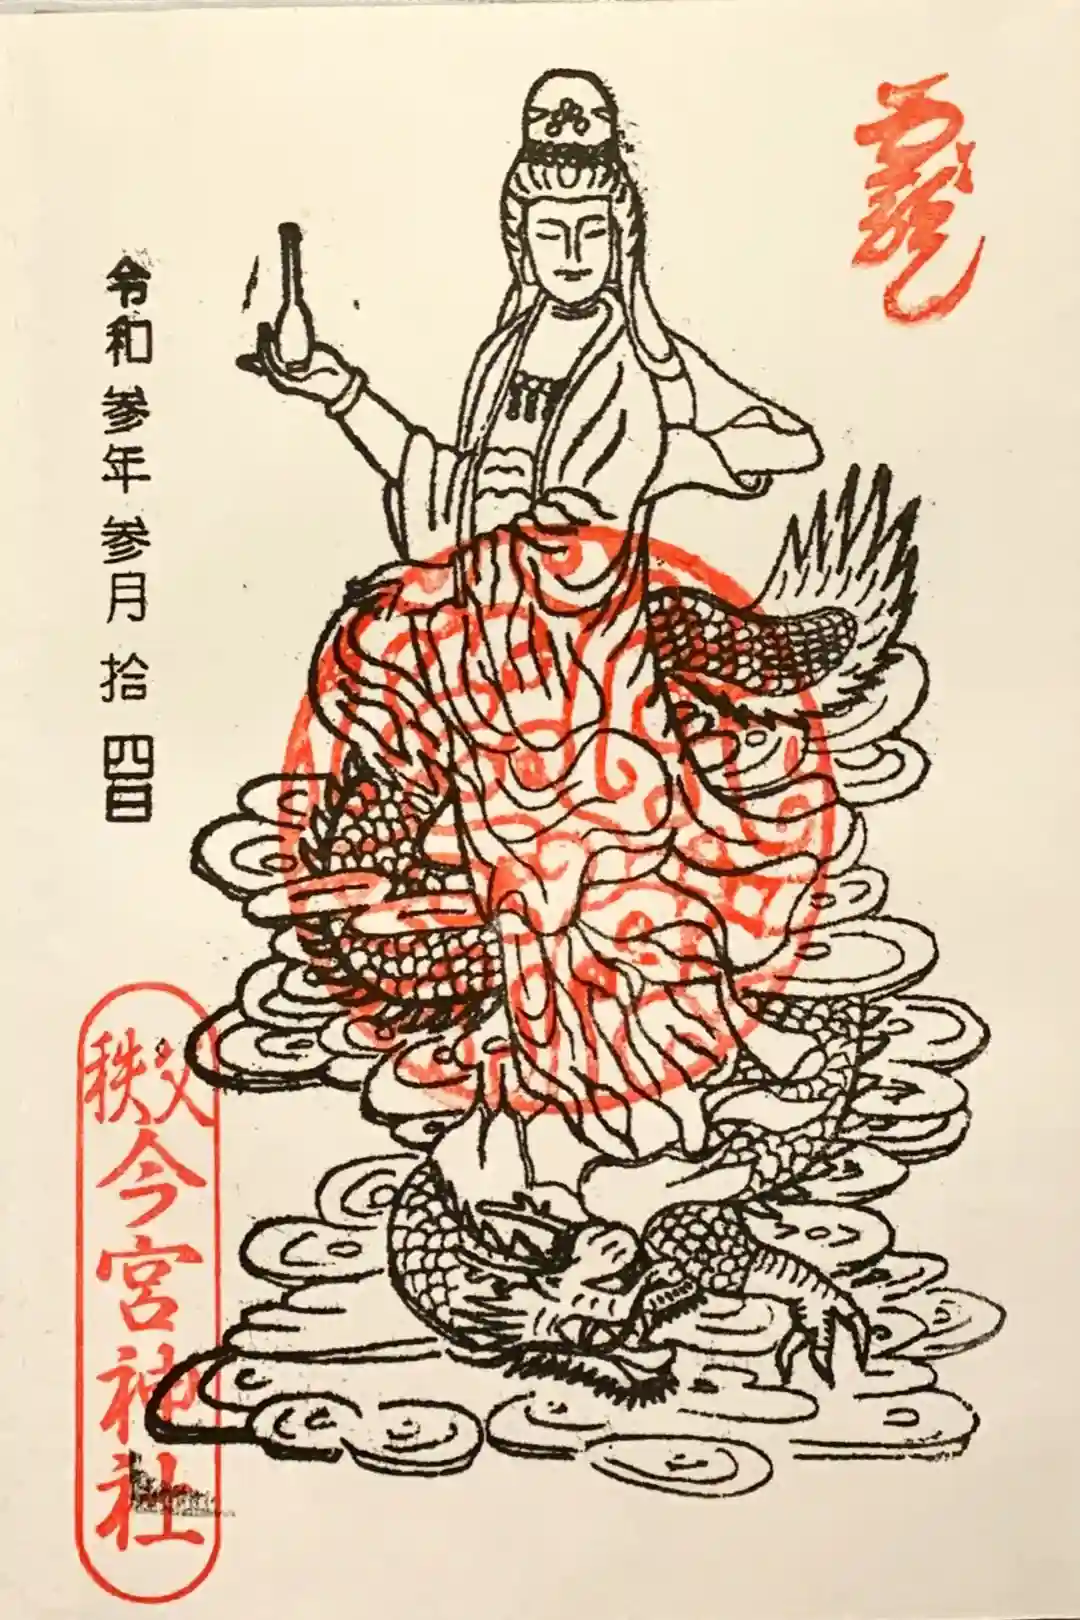 龍
令和参年参月拾四日
秩父
今宮神社